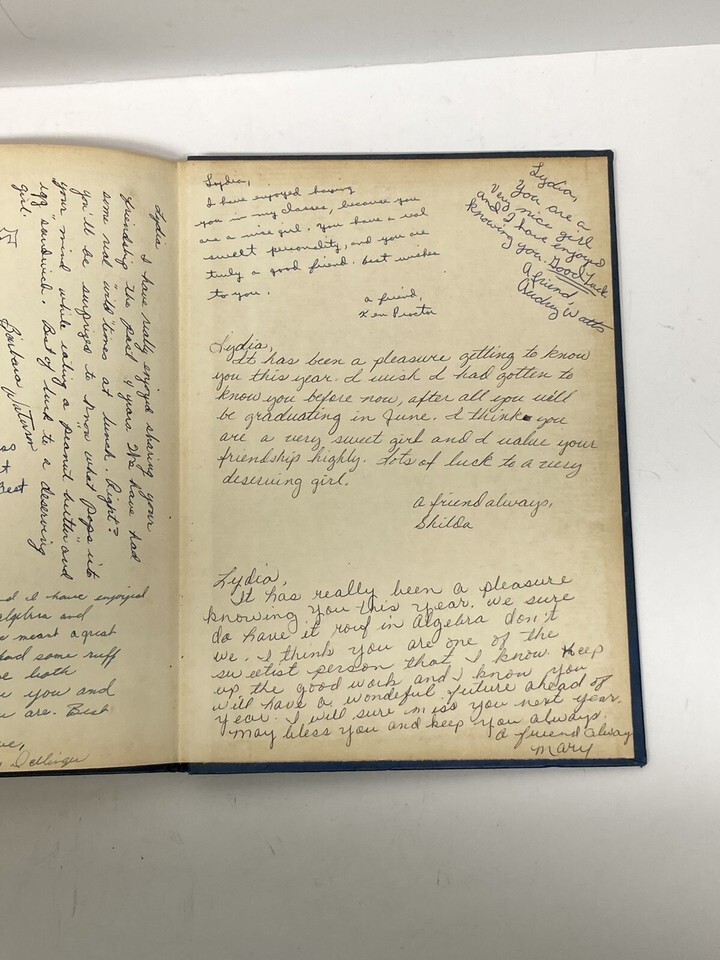 Lydia
I have really enjoyed sharing your
friendship the past 4 years. We have had
some real "wild" times at lunch. Right?
you'll be surprized to know what pops into
your mind while eating a peanut butter and
egg sandwich. Best of luck to a deserving
girl.
Barbara
Best
and I have enjoyed
algebra and
meant a great
had some ruff
both
you and
are. Best
Dellinger
Lydia,
I have enjoyed having
you in my classes, because you
are a nice girl. You have a real
sweet personality, and you are
truly a good friend. Best wishes
to you.
a friend,
Ken Proctor
Lydia,
You are a
very nice girl
and I have enjoyed
knowing you. Good Luck
A friend
Audrey Watts
Lydia,
It has been a pleasure getting to know
you this year. I wish I had gotten to
know you before now, after all you will
be graduating in June. I think you
are a very sweet girl and I value your
friendship highly. Lots of luck to a very
deserving girl.
A friend always,
Shilda
Lydia,
It has really been a pleasure
knowing you this year. We sure
do have it rouf in Algebra don't
we. I think you are one of the
sweetist person that I know. Keep
up the good work and I know you
will have a wondeful future ahead of
year. I will sure miss you next year.
May bless you and keep you always.
a friend alway
Mary